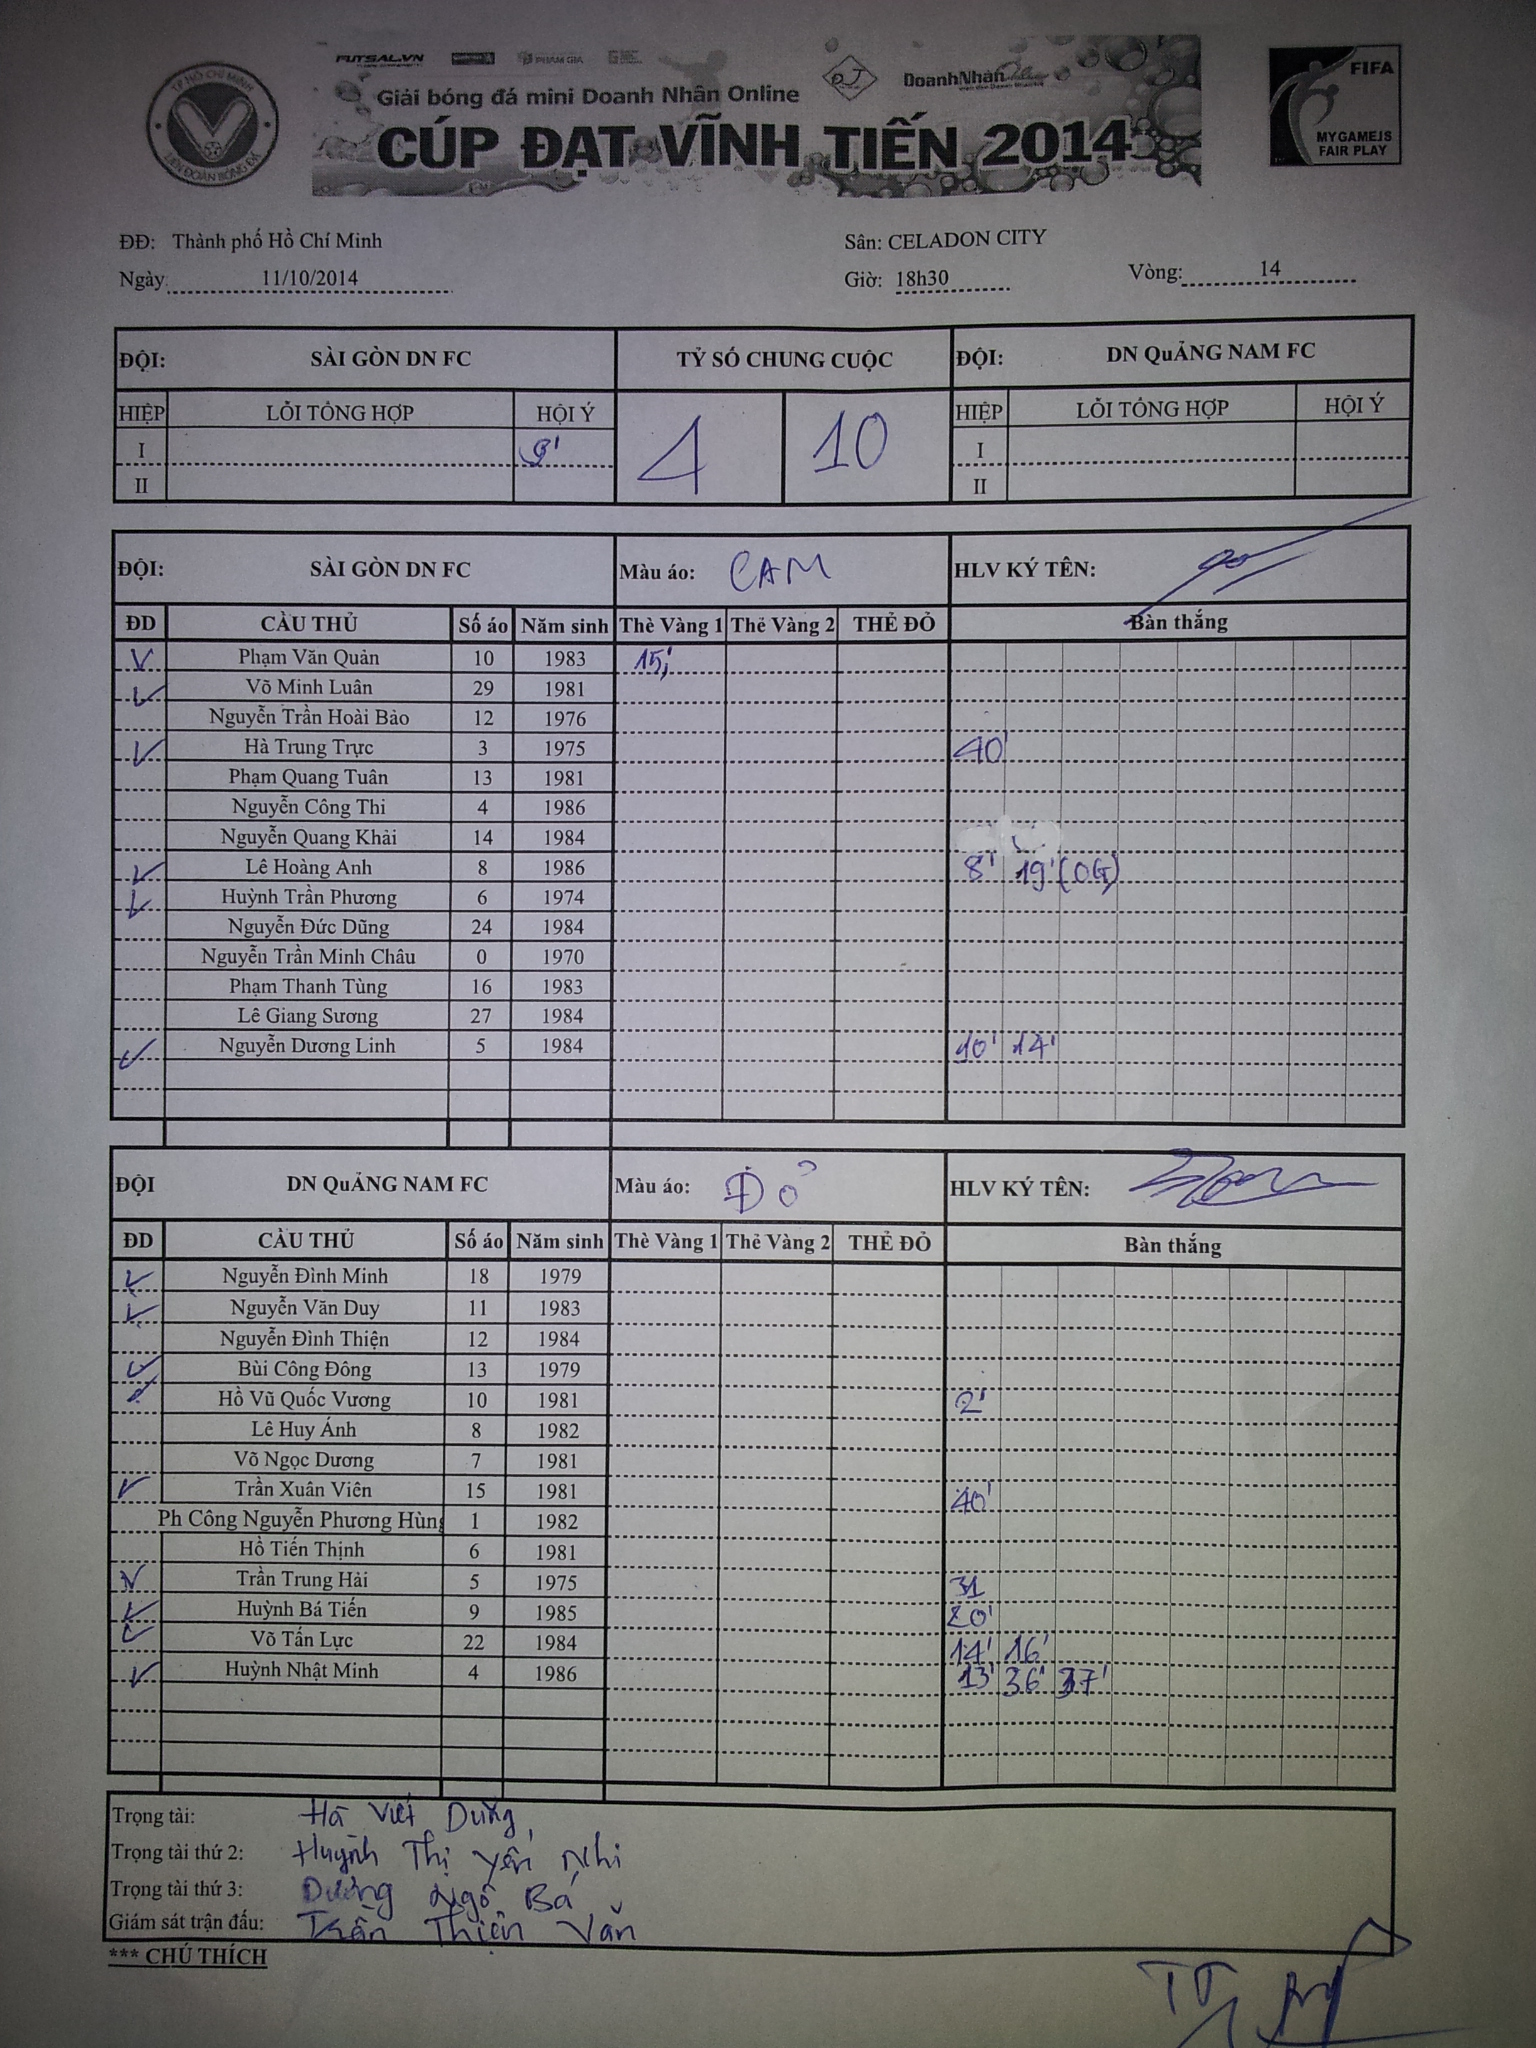 FUTSAL.VN PHAM GIA
Giải bóng đá mini Doanh Nhân Online
ĐJ DoanhNhân
CÚP ĐẠT VĨNH TIẾN 2014
TP HỒ CHÍ MINH
LIÊN ĐOÀN BÓNG ĐÁ
FIFA
MY GAME IS
FAIR PLAY
ĐĐ: Thành phố Hồ Chí Minh Sân: CELADON CITY
Ngày 11/10/2014 Giờ: 18h30 Vòng: 14
ĐỘI: SÀI GÒN DN FC TỶ SỐ CHUNG CUỘC ĐỘI: DN QuẢNG NAM FC
HIỆP LỖI TỔNG HỢP HỘI Ý 4 10 HIỆP LỖI TỔNG HỢP HỘI Ý
I 9' I
II II
ĐỘI: SÀI GÒN DN FC Màu áo: CAM HLV KÝ TÊN:
ĐD CẦU THỦ Số áo Năm sinh Thẻ Vàng 1 Thẻ Vàng 2 THẺ ĐỎ Bàn thắng
Phạm Văn Quản 10 1983 15'
Võ Minh Luân 29 1981
Nguyễn Trần Hoài Bảo 12 1976
Hà Trung Trực 3 1975 40'
Phạm Quang Tuân 13 1981
Nguyễn Công Thi 4 1986
Nguyễn Quang Khải 14 1984
Lê Hoàng Anh 8 1986 8' 19' (OG)
Huỳnh Trần Phương 6 1974
Nguyễn Đức Dũng 24 1984
Nguyễn Trần Minh Châu 0 1970
Phạm Thanh Tùng 16 1983
Lê Giang Sương 27 1984
Nguyễn Dương Linh 5 1984 10' 14'
ĐỘI DN QuẢNG NAM FC Màu áo: Đỏ HLV KÝ TÊN:
ĐD CẦU THỦ Số áo Năm sinh Thẻ Vàng 1 Thẻ Vàng 2 THẺ ĐỎ Bàn thắng
Nguyễn Đình Minh 18 1979
Nguyễn Văn Duy 11 1983
Nguyễn Đình Thiện 12 1984
Bùi Công Đông 13 1979
Hồ Vũ Quốc Vương 10 1981 2'
Lê Huy Ánh 8 1982
Võ Ngọc Dương 7 1981
Trần Xuân Viên 15 1981 40'
Ph Công Nguyễn Phương Hùng 1 1982
Hồ Tiến Thịnh 6 1981
Trần Trung Hải 5 1975 31
Huỳnh Bá Tiến 9 1985 20'
Võ Tấn Lực 22 1984 14' 16'
Huỳnh Nhật Minh 4 1986 13' 36' 37'
Trọng tài: Hà Viết Dũng
Trọng tài thứ 2: Huỳnh Thị Yến Nhi
Trọng tài thứ 3: Dương Ngô Bá
Giám sát trận đấu: Trần Thiện Văn
*** CHÚ THÍCH